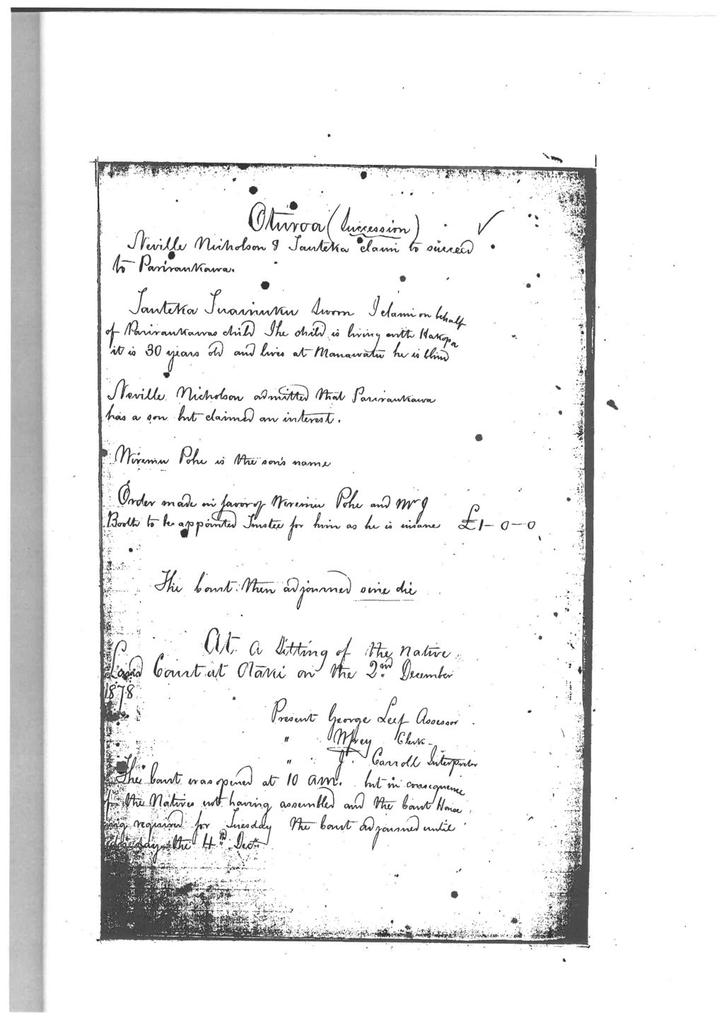 Oturoa (Succession) ✓
Neville Nicholson & Tauteka claim to succeed
to Pariraukawa.
Tauteka sworn I claim on behalf
of Pariraukawas child The child is living with Hakopa
it is 30 years old and lives at Manawatu he is blind
Neville Nicholson admitted that Pariraukawa
has a son but claimed an interest.
Wiremu Pohe is the son's name
Order made in favor of Wiremu Pohe and Mr J
Booth to be appointed Trustee for him as he is insane £1-0-0
The Court then adjourned sine die
At a Sitting of the Native
Land Court at Otaki on the 2nd December
1878
Present George Leef Assessor
" Clerk
" J. Carroll Interpreter
The Court was opened at 10 am. but in consequence
of the Natives not having assembled and the Court House
being required for Tuesday the Court adjourned until
the 4th Decr.